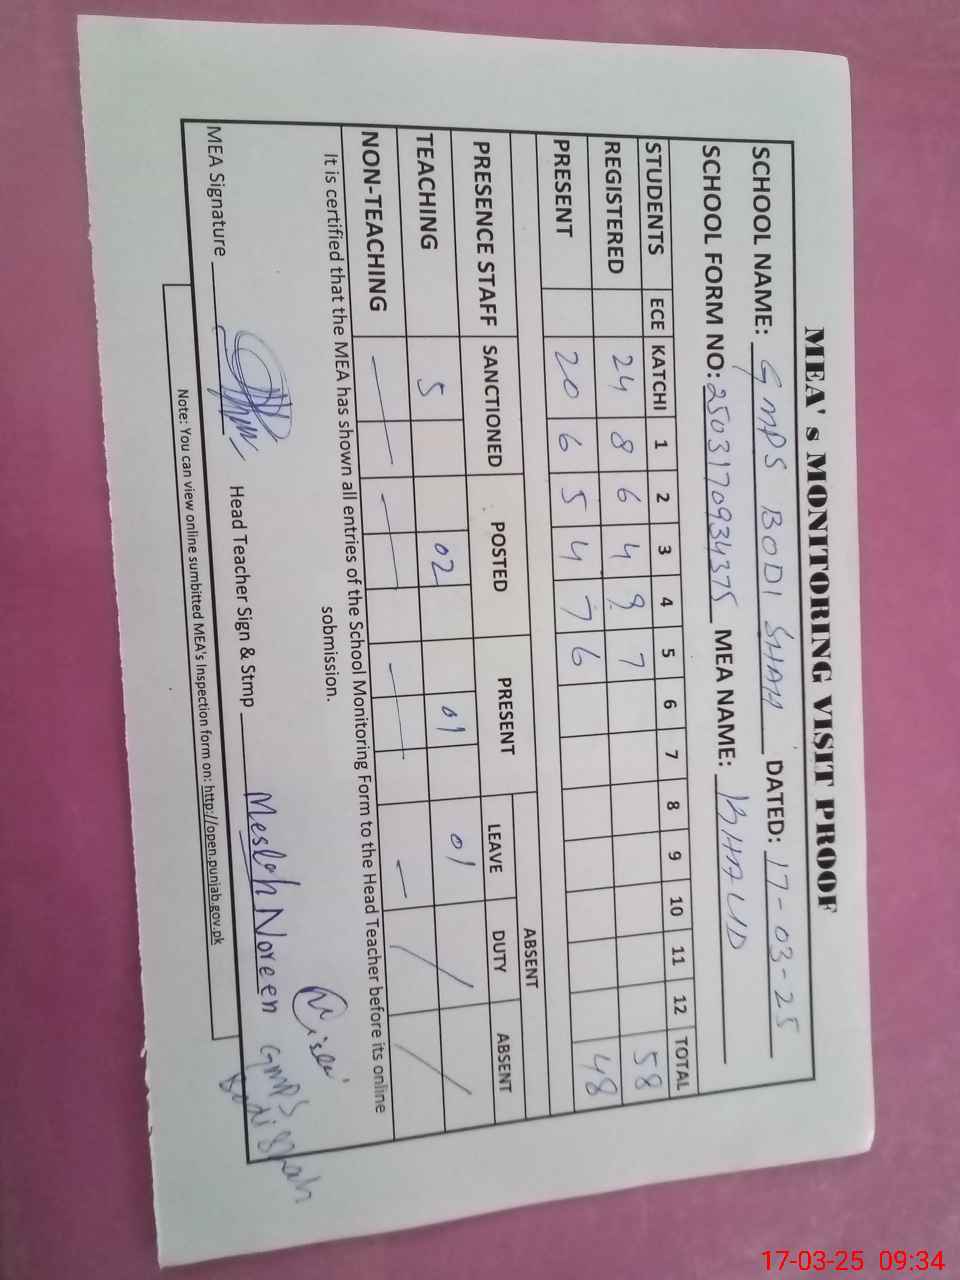 MEA's MONITORING VISIT PROOF
SCHOOL NAME: GMPS BODI SHAH DATED: 17-03-25
SCHOOL FORM NO: 2503170934375 MEA NAME: KHALID
STUDENTS ECE KATCHI 1 2 3 4 5 6 7 8 9 10 11 12 TOTAL
REGISTERED 24 8 6 4 9 7 58
PRESENT 20 6 5 4 7 6 48
ABSENT
PRESENCE STAFF SANCTIONED POSTED PRESENT LEAVE DUTY ABSENT
TEACHING 5 02 01 01 /  /
NON-TEACHING — — — — / /
It is certified that the MEA has shown all entries of the School Monitoring Form to the Head Teacher before its online
sobmission.
MEA Signature Head Teacher Sign & Stmp Meslah Noreen GMPS
Bodi Shah
Note: You can view online sumbitted MEA's Inspection form on: http://open.punjab.gov.pk
17-03-25 09:34